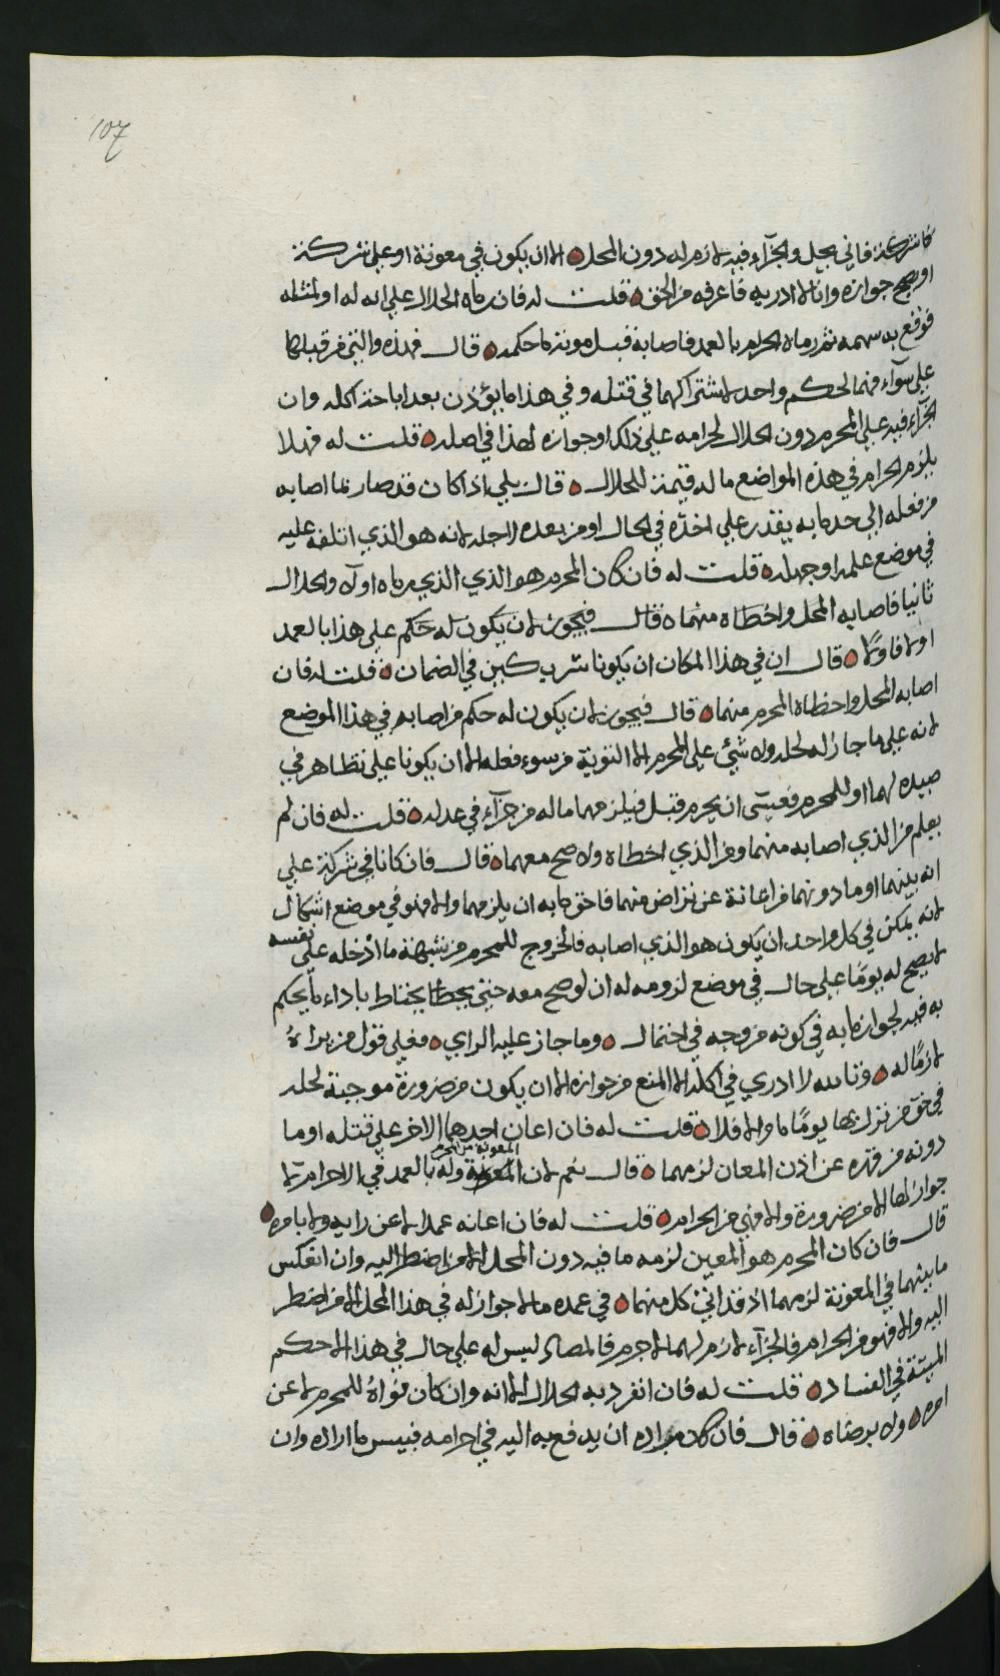 107
كاشركة فاني يحل والجزآء فيه لازم له دون المحل الا ان يكون في معونة او على شركة
او يصح جوازه وانا لا ادريه فاعرفه من الحق قلت له فان رماه الحلال على انه له او لمثله
فوقع به سهمه ثم رماه الحرام بالعمد فاصابه قبل موته ما حكمه قال فهذه والتي من قبلها
على سوآء فهما لحكم واحد لاشتراكهما في قتله وفي هذا ما يؤذن بعد اباحة اكله وان
الجزآء فيه على المحرم دون الحلال لحرامه على ذلك او جوازه لهذا في اصله قلت له فهلا
يلزم الحرام في هذه المواضع ما له قيمة للحلال قال بلى اذا كان قد صار بما اصابه
من فعله الى حد ما به يقدر على اخذه في الحال او من بعده لاجله لانه هو الذي اتلفه عليه
في موضع علمه او جهله قلت له فان كان المحرم هو الذي الذي رماه اولا والحلال
ثانيا فاصابه المحل واخطاه منهما قال فيجوز لان يكون له حكم على هذا بالعمد
اولا فاولا قال ان في هذا المكان ان يكونا شريكين في الضمان قلت له فان
اصابه المحل واخطاه المحرم منهما قال فيجوز لان يكون له حكم من اصابه في هذا الموضع
لانه على ما جاز له لحله ولا شيء على المحرم الا التوبة من سوء فعله الا ان يكونا على تظاهر في
صيده لهما او للمحرم فعسى ان يحرم قبل فيلزمهما ما له من جزآء في عدله قلت له فان لم
يعلم من الذي اصابه منهما ومن الذي اخطاه ولا صح معهما قال فان كانا في شركة على
انه بينهما او ما دونهما من اعانة عن تراض منهما فاحق ما به ان يلزمهما والا فهو في موضع اشكال
لانه يمكن في كل واحد ان يكون هو الذي اصابه فالخروج للمحرم من شبهة ما ادخله على نفسه
لا يصح له يوما على حال في موضع لزومه له ان لو صح معه حتى يحتاط باداء ما يحكم
به فيه لجواز ما به في كونه من وجه في احتمال وما جاز عليه الراي فعلى قول من يراه
لازما له وتالله لا ادري في اكله الا المنع من جوازه الا ان يكون من ضرورة موجبة لحله
في حق من نزل بها يوما ما والا فلا قلت له فان اعان احدهما الاخر على قتله او ما
دونه من قهره عن اذن المعان لزمهما قال نعم لان المعونة وله بالعمد في الاحرام لا
المعونة من المحرم
جواز لها الا من ضرورة والا فهي من الحرام قلت له فان اعانه عمدا لا عن رايه ولا بامره
قال فان كان المحرم هو المعين لزمه ما فيه دون المحل الا من اضطر اليه وان انعكس
ما بينهما في المعونة لزمهما اذ قد اتى كل منهما في عمده ما لا جواز له في هذا المحل الا من اضطر
اليه والا فهو من الحرام فالجزآء لازم لهما لا جرم فالمصاد ليس له على حال في هذا الا حكم
الميتة في الفساد قلت له فان انفرد به الحلال الا انه وان كان نواه للمحرم لا عن
امره ولا برضاه قال فان كان مراده ان يدفع به اليه في احرامه فبيس ما اراده وان